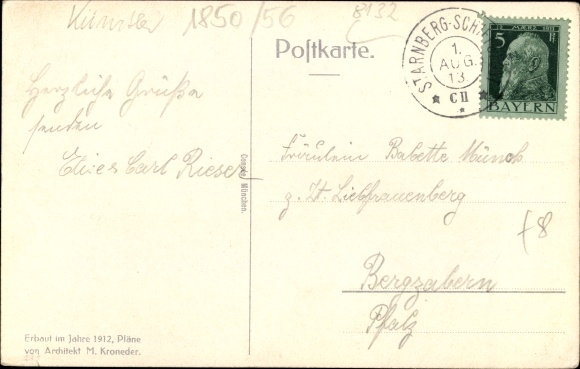 Künstler 1850/56 8132
Postkarte.
STARNBERG-SCH
1.
AUG.
13.
* C II *
12 MÄRZ 1911
5 Pf
BAYERN
Herzliche Grüße
senden
Carl Rieser
Fräulein Babette Münch
z. Zt. Liebfrauenberg
f8
Bergzabern
Pfalz
München.
Erbaut im Jahre 1912, Pläne
von Architekt M. Kroneder.